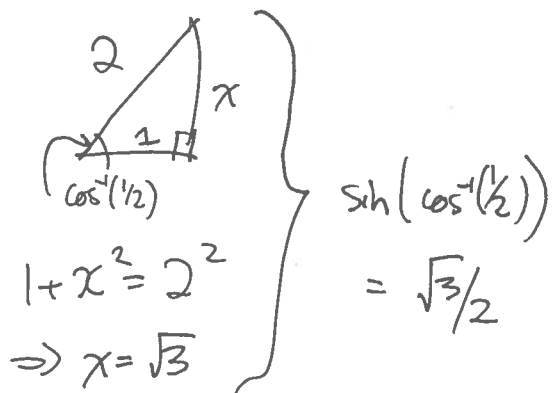 2
x
1
cos⁻¹(1/2)
1+x²=2²
⇒ x=√3
sin(cos⁻¹(1/2))
= √3/2